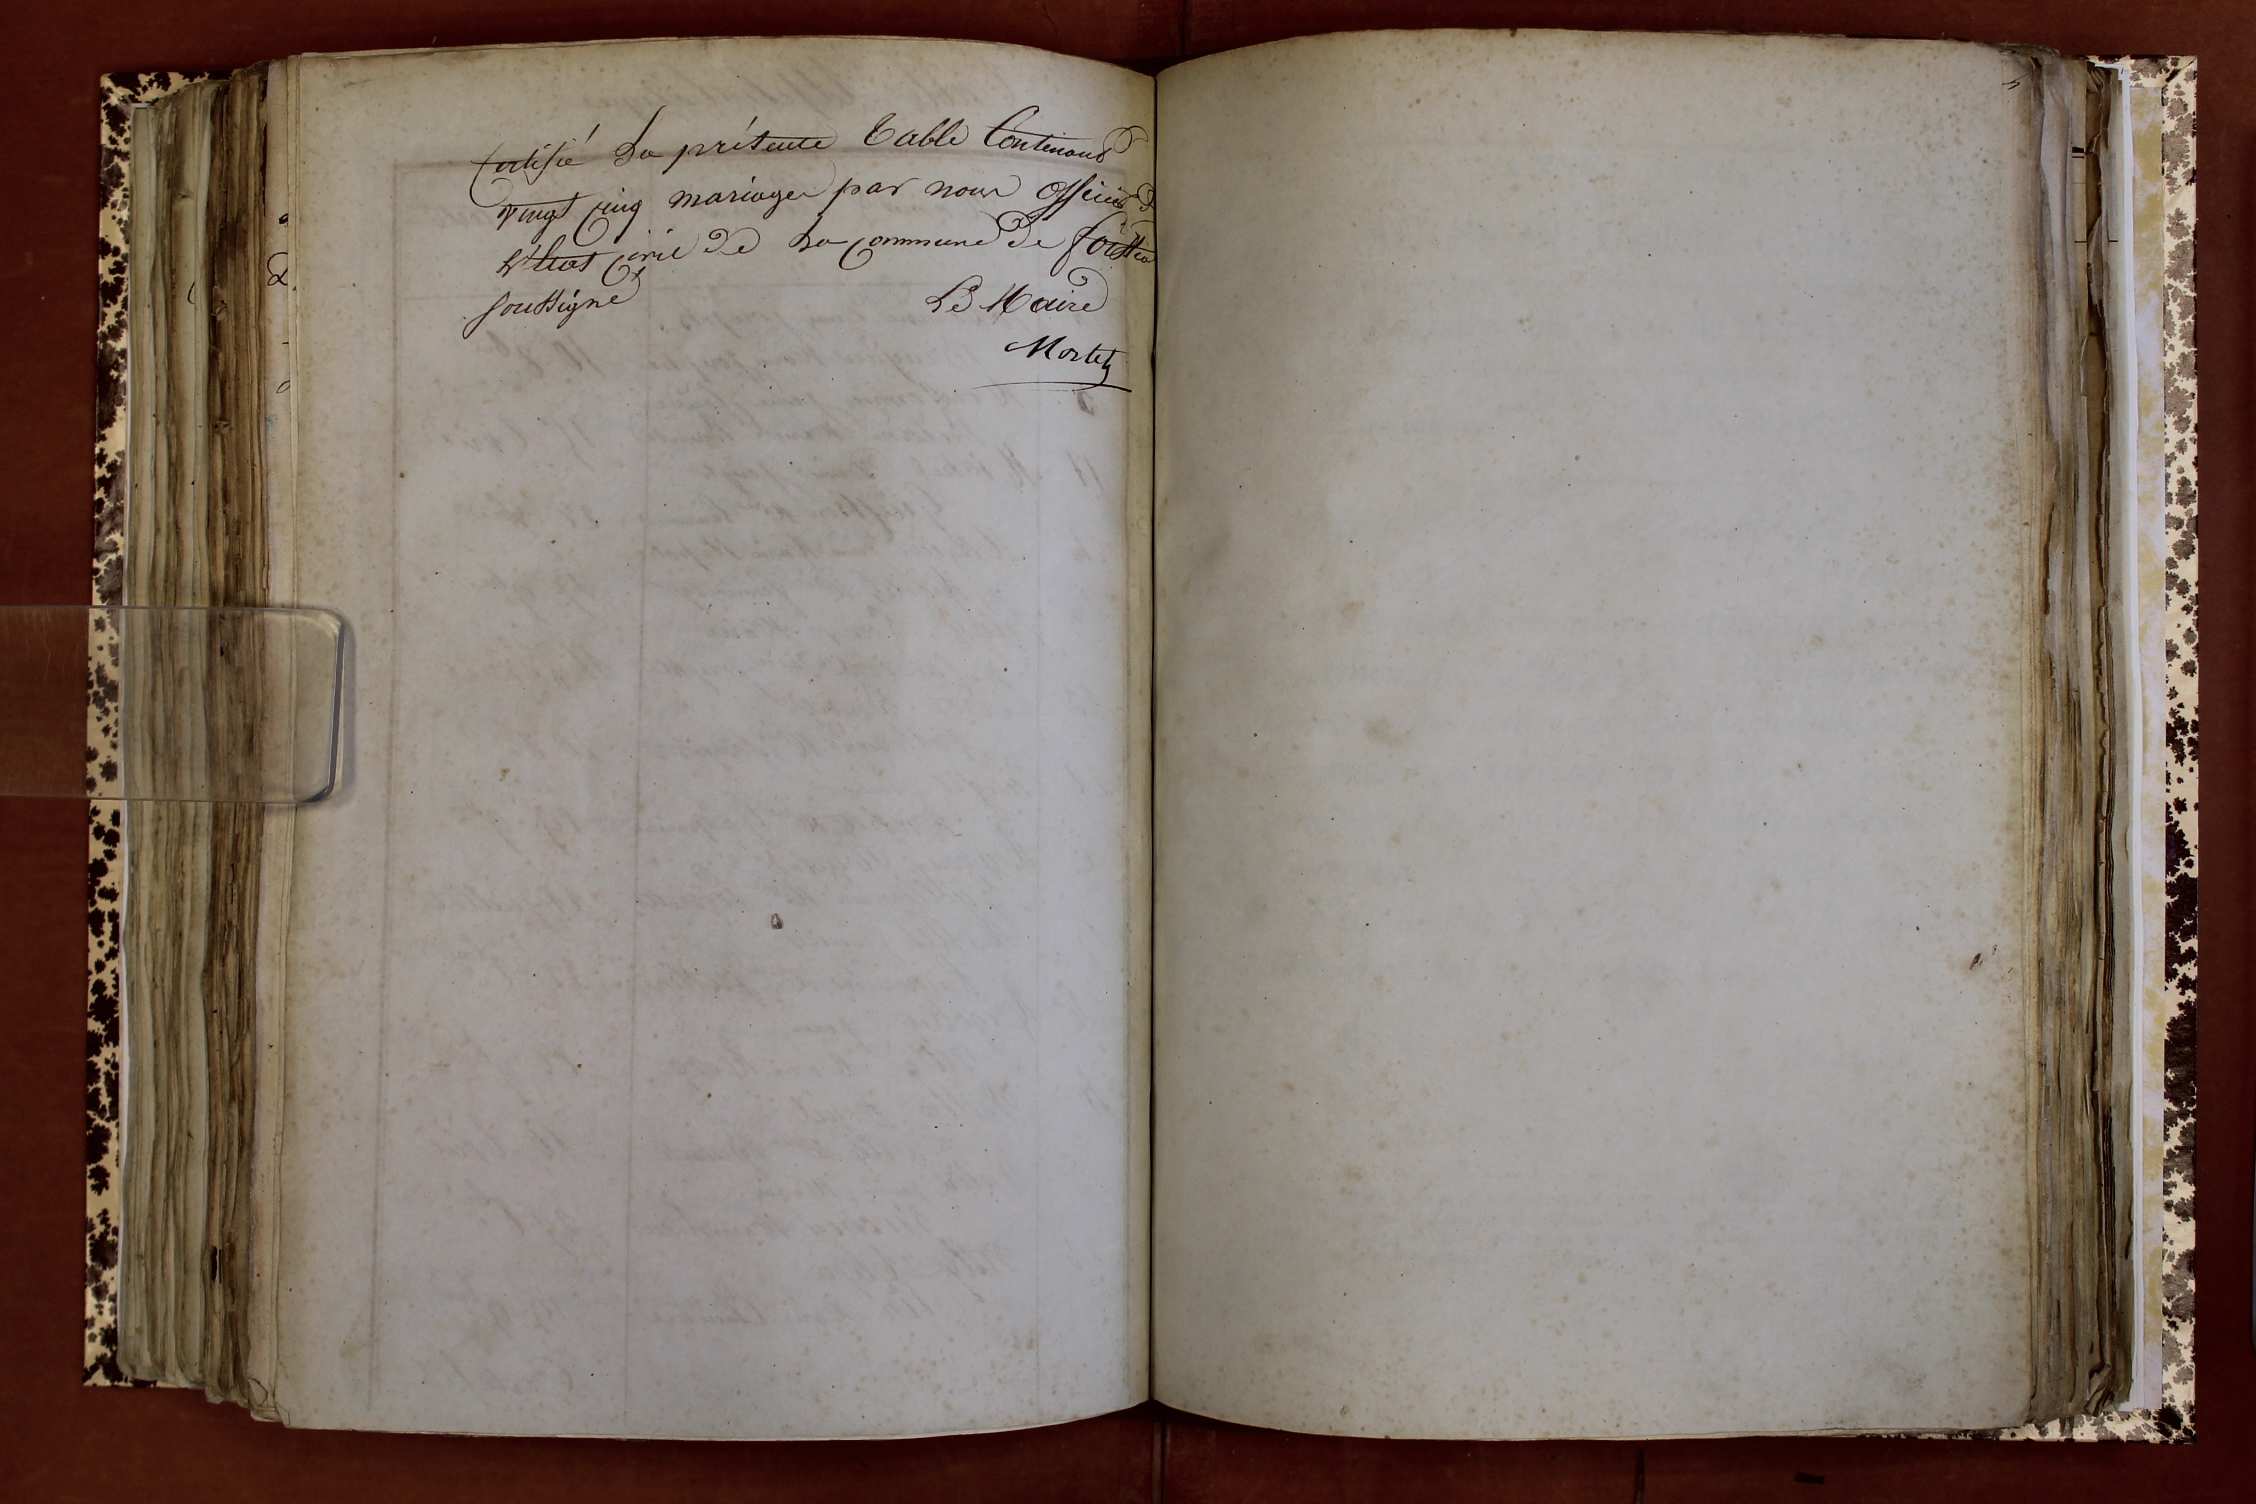 Certifié La présente Table Contenant
vingt cinq mariages par nous officier de
L'état civil de La commune de
soussigné
Le Maire
Mortet